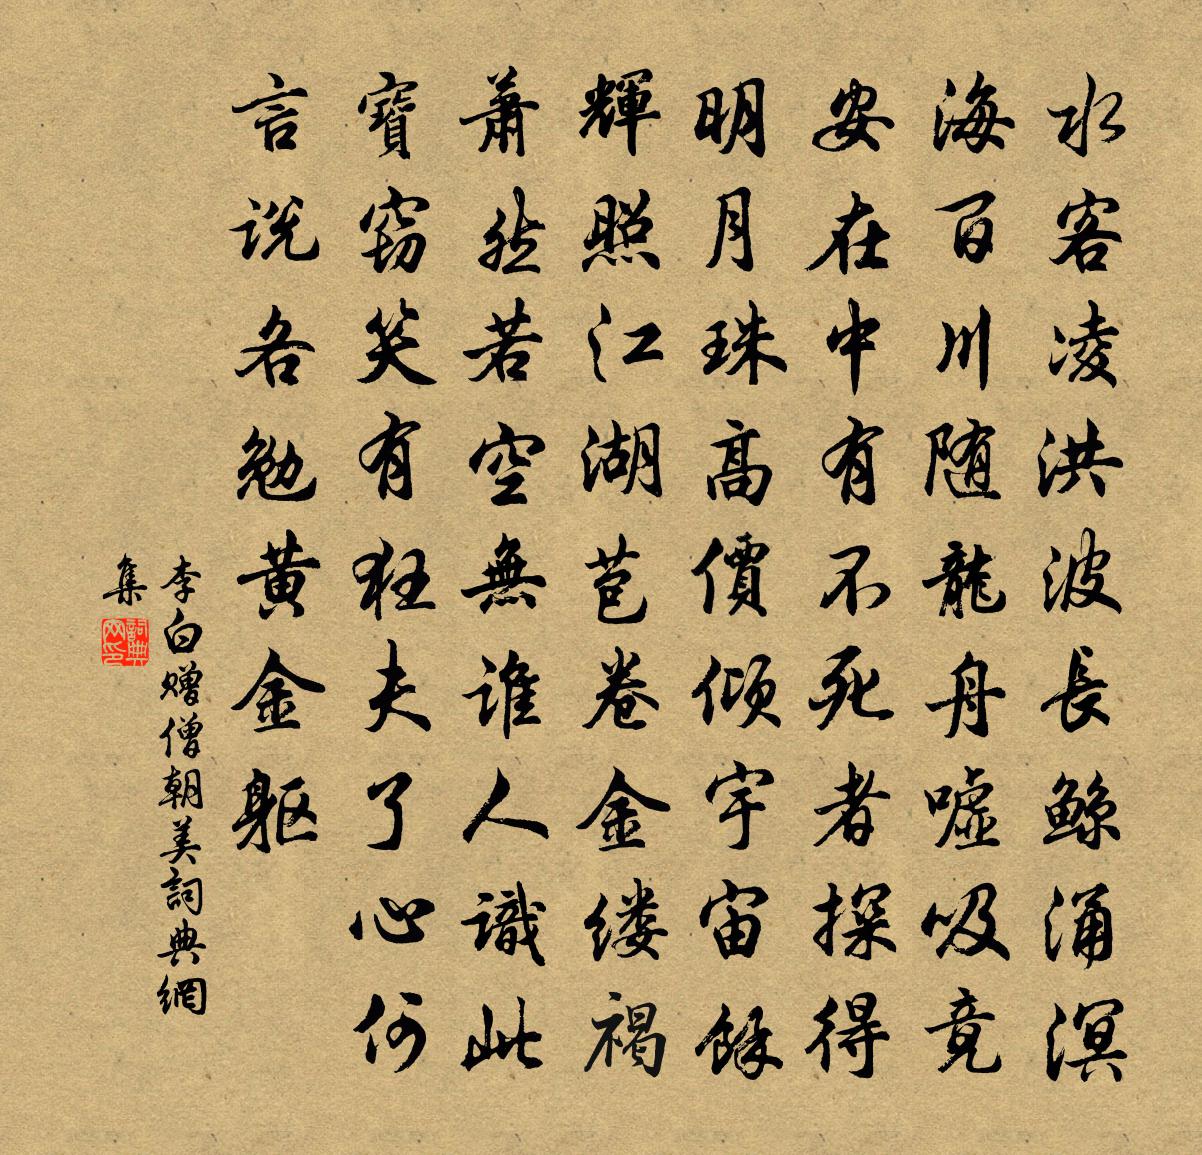 水客凌洪波長鲸涌溟
海百川随龍舟嘘吸竟
安在中有不死者探得
明月珠高價傾宇宙餘
輝照江湖苞卷金缕褐
蕭然若空無誰人識此
寶窃笑有狂夫了心何
言说各勉黄金躯
李白赠僧朝美詞典網
集
詞典
网印